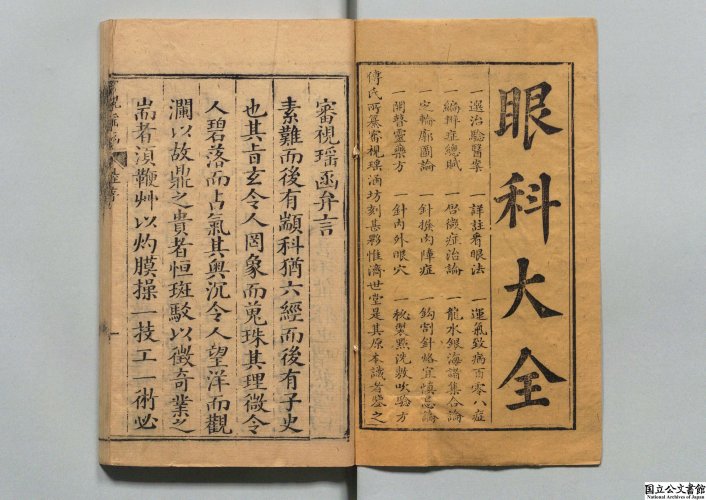 眼科大全
一運氣致病百零八症
一龍水銀海諸集合論
一鈎割針烙宜慎忌論
一秘製點洗敷吹驗方
一詳註看眼法
一啓微症治論
一針撥內障症
一針內外眼穴
一選治驗醫案
一編辨症總賦
一定輪廓圖論
一開瞽靈藥方
傅氏所纂審視瑶函坊刻甚夥惟濟世堂是其原本識者鑒之
審視瑶函弁言
素難而後有顓科猶六經而後有子史
也其旨玄令人罔象而蒐珠其理微令
人碧落而占氣其輿沉令人望洋而觀
瀾以故鼎之貴者恒斑駁以徵奇業之
耑者湏鞭艸以灼膜操一技工一術必
国立公文書館
National Archives of Japan